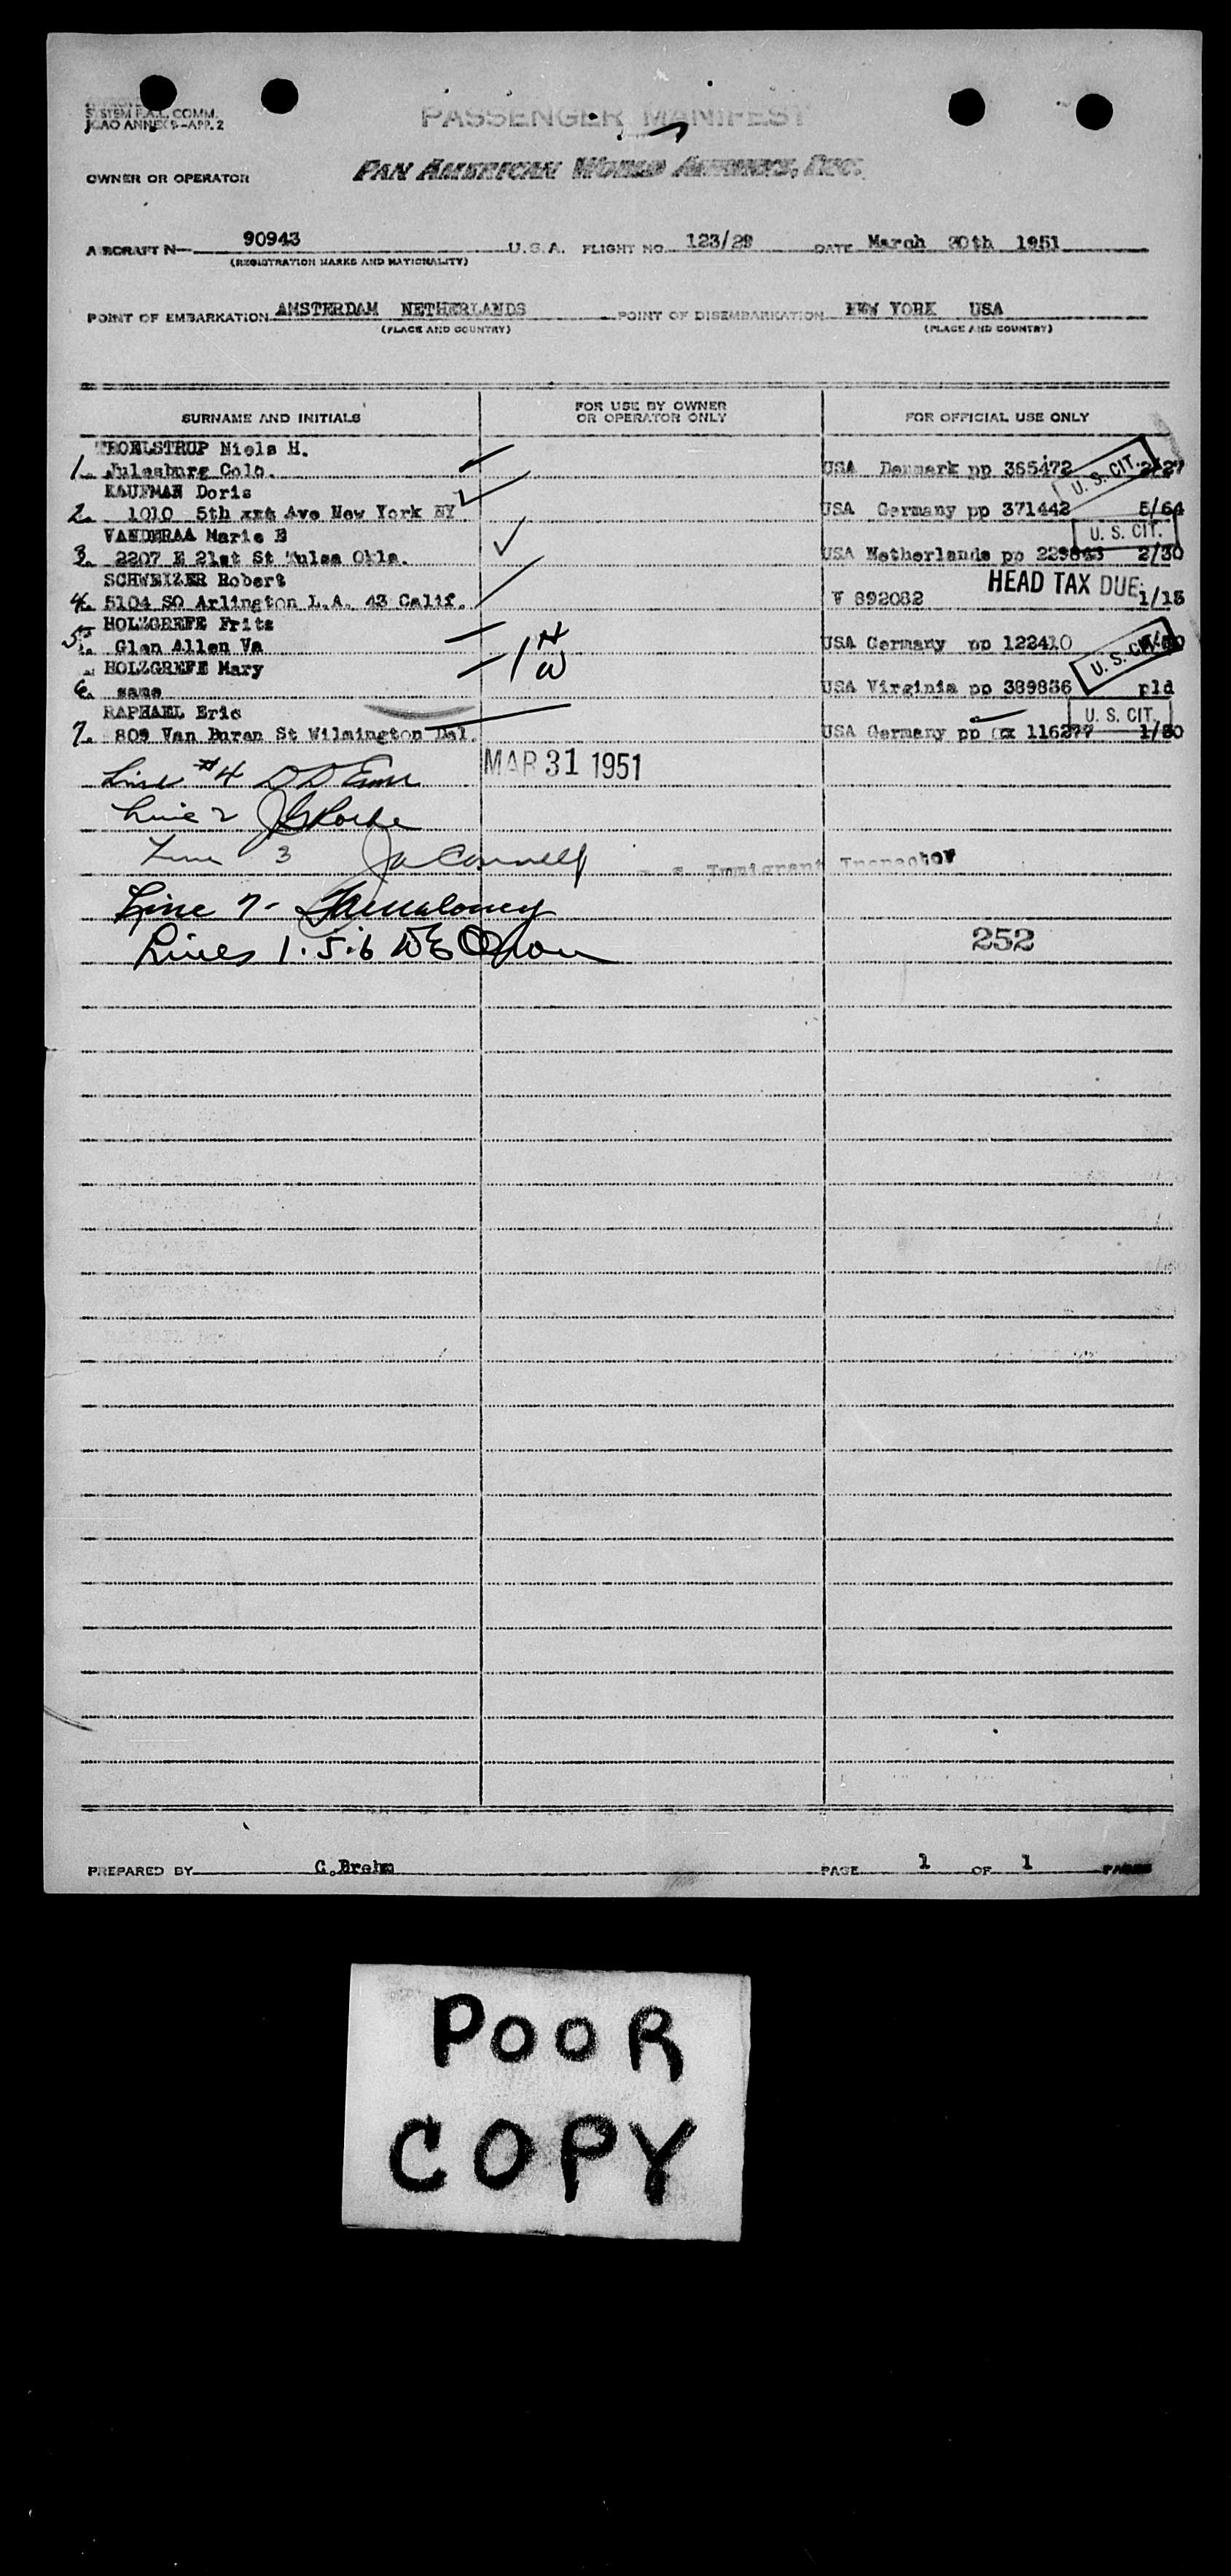 SYSTEM F.A.L. COMM.
ICAO ANNEX 9-APP. 2
PASSENGER MANIFEST
OWNER OR OPERATOR
PAN AMERICAN WORLD AIRWAYS, INC.
AIRCRAFT N— 90943 U.S.A. FLIGHT NO. 123/29 DATE March 30th 1951
(REGISTRATION MARKS AND NATIONALITY)
POINT OF EMBARKATION AMSTERDAM NETHERLANDS POINT OF DISEMBARKATION NEW YORK USA
(PLACE AND COUNTRY) (PLACE AND COUNTRY)
SURNAME AND INITIALS FOR USE BY OWNER OR OPERATOR ONLY FOR OFFICIAL USE ONLY
TROELSTRUP Niels H.
1. Julesburg Colo. USA Denmark pp 365472 2/27
U. S. CIT.
KAUFMAN Doris
2. 1010 5th xxt Ave New York NY USA Germany pp 371442 5/64
U. S. CIT.
VANDERAA Marie E
3. 2207 E 21st St Tulsa Okla. USA Netherlands pp 2/30
SCHWEIZER Robert
HEAD TAX DUE
4. 5104 SO Arlington L.A. 43 Calif. V 892082 1/15
HOLZGREFE Fritz
5. Glen Allen Va 1 H USA Germany pp 122410
U. S. CIT.
HOLZGREFE Mary
W
6. same USA Virginia pp 389836 pld
RAPHAEL Eric
U. S. CIT.
7. 809 Van Buran St Wilmington Del. USA Germany pp 116277 1/30
MAR 31 1951
Line #4 D D
Line 2 J G Rocke
Line 3 Connell
Immigrant Inspector
Line 7- Maloney
Lines 1.5.6 W E
252
PREPARED BY C.Brehm PAGE 1 OF 1 PAGES
POOR
COPY